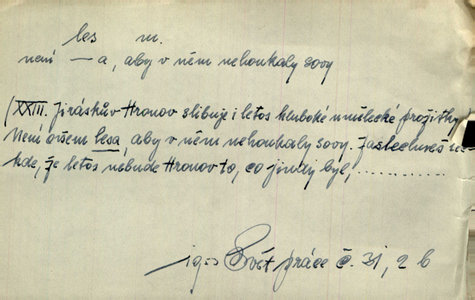 les m.
není — a, aby v něm nehoukaly sovy
(XXIII. Jiráskův Hronov slibuje i letos hluboké umělecké prožitky.
Není ovšem lesa, aby v něm nehoukaly sovy. Zaslechneš lec-
kde, že letos nebude Hronov to, co jindy byl, ............
1953 Svět práce č. 31, 2 b